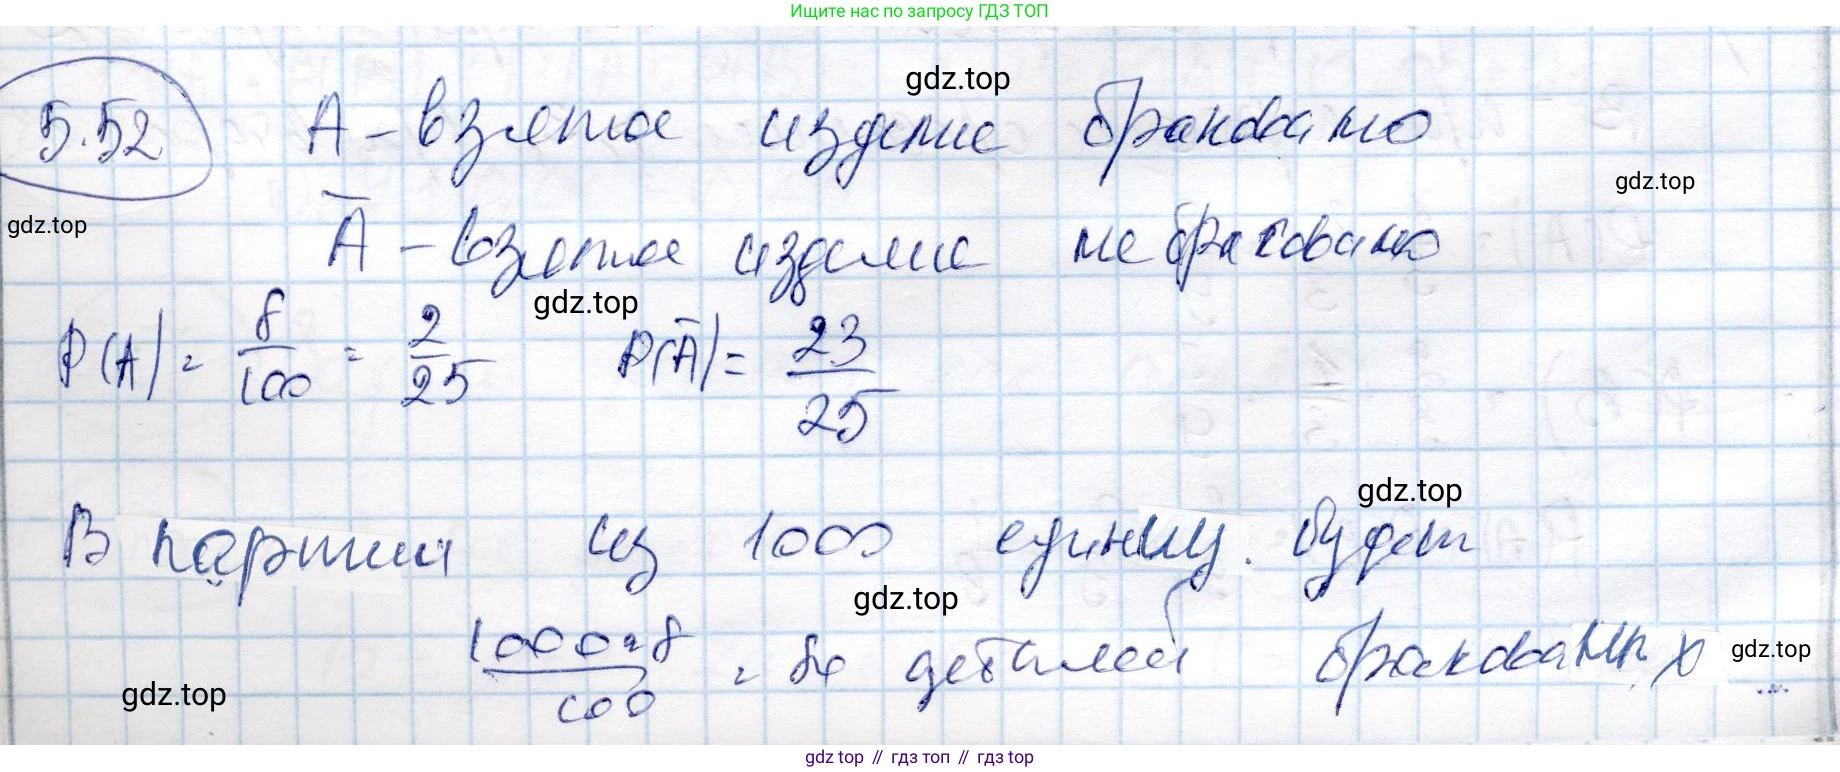 Ищите нас по запросу ГДЗ ТОП
gdz.top
5.52 A - взятое изделие браковано
gdz.top
gdz.top
A̅ - взятое изделие не браковано
gdz.top
P(A) = 8/100 = 2/25 P(A̅) = 23/25
gdz.top
В партии из 1000 единиц. будет
gdz.top
1000·8/100 = 80 деталей бракованных
gdz.top
gdz.top
gdz top // гдз топ // gdz top